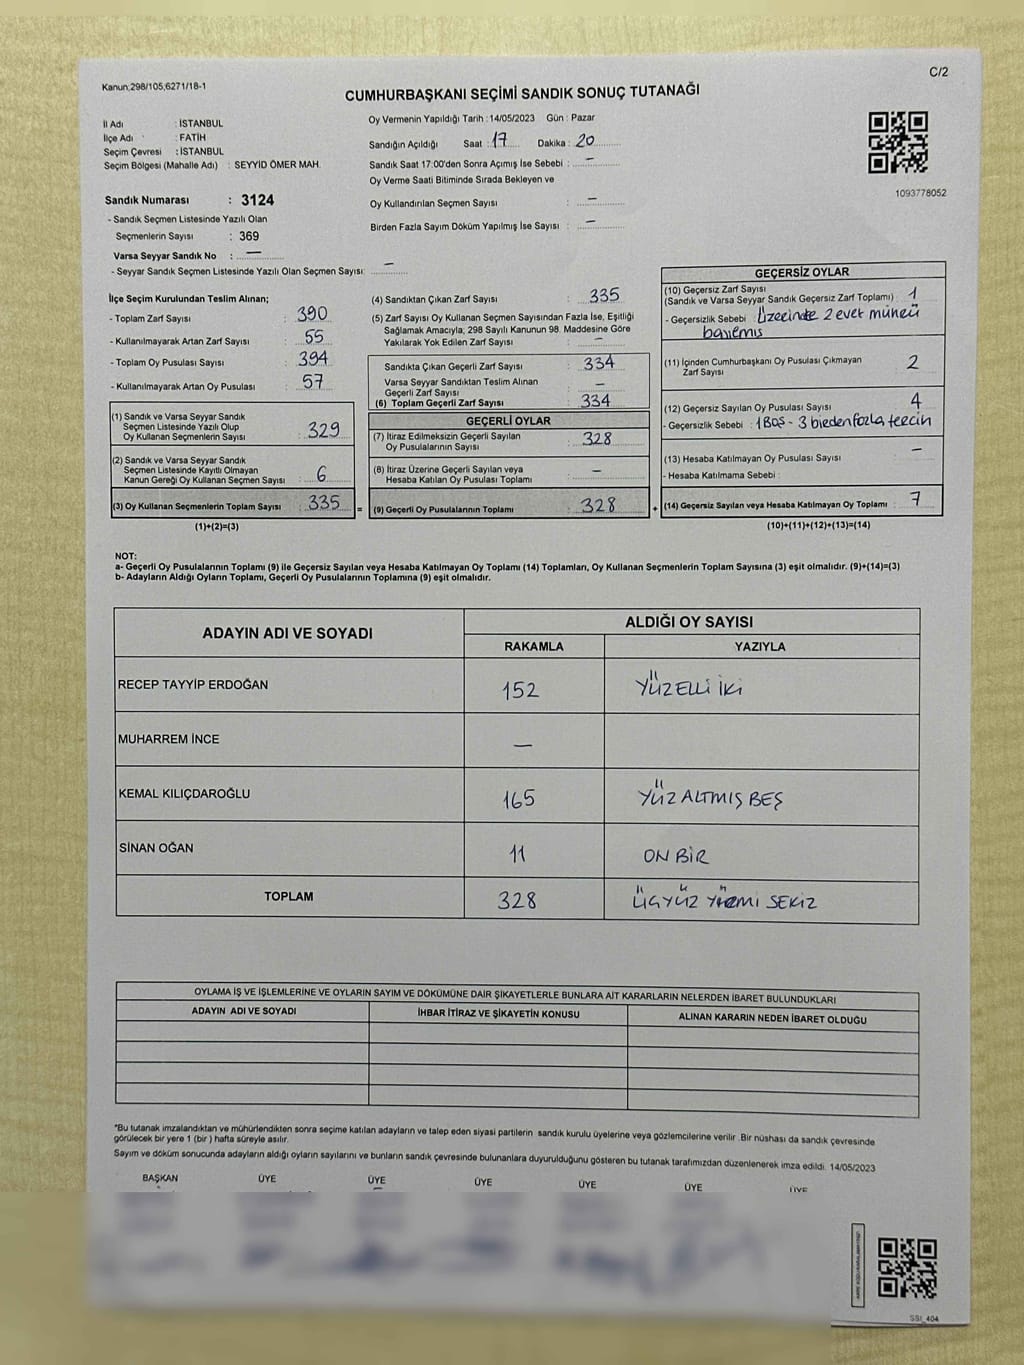 C/2
Kanun;298/105;6271/18-1
CUMHURBAŞKANI SEÇİMİ SANDIK SONUÇ TUTANAĞI
İl Adı : İSTANBUL
İlçe Adı : FATİH
Seçim Çevresi : İSTANBUL
Seçim Bölgesi (Mahalle Adı) : SEYYİD ÖMER MAH.
Sandık Numarası : 3124
- Sandık Seçmen Listesinde Yazılı Olan
Seçmenlerin Sayısı : 369
Varsa Seyyar Sandık No : —
- Seyyar Sandık Seçmen Listesinde Yazılı Olan Seçmen Sayısı: —
Oy Vermenin Yapıldığı Tarih : 14/05/2023 Gün : Pazar
Sandığın Açıldığı Saat : 17 Dakika : 20
Sandık Saat 17:00'den Sonra Açımış İse Sebebi : —
Oy Verme Saati Bitiminde Sırada Bekleyen ve
Oy Kullandırılan Seçmen Sayısı : —
Birden Fazla Sayım Döküm Yapılmış İse Sayısı : —
1093778052
İlçe Seçim Kurulundan Teslim Alınan;
- Toplam Zarf Sayısı : 390
- Kullanılmayarak Artan Zarf Sayısı : 55
- Toplam Oy Pusulası Sayısı : 394
- Kullanılmayarak Artan Oy Pusulası : 57
(1) Sandık ve Varsa Seyyar Sandık
Seçmen Listesinde Yazılı Olup
Oy Kullanan Seçmenlerin Sayısı : 329
(2) Sandık ve Varsa Seyyar Sandık
Seçmen Listesinde Kayıtlı Olmayan
Kanun Gereği Oy Kullanan Seçmen Sayısı : 6
(3) Oy Kullanan Seçmenlerin Toplam Sayısı : 335 =
(1)+(2)=(3)
(4) Sandıktan Çıkan Zarf Sayısı : 335
(5) Zarf Sayısı Oy Kullanan Seçmen Sayısından Fazla İse, Eşitliği
Sağlamak Amacıyla, 298 Sayılı Kanunun 98. Maddesine Göre
Yakılarak Yok Edilen Zarf Sayısı : —
Sandıkta Çıkan Geçerli Zarf Sayısı : 334
Varsa Seyyar Sandıktan Teslim Alınan
Geçerli Zarf Sayısı : —
(6) Toplam Geçerli Zarf Sayısı : 334
GEÇERLİ OYLAR
(7) İtiraz Edilmeksizin Geçerli Sayılan
Oy Pusulalarının Sayısı : 328
(8) İtiraz Üzerine Geçerli Sayılan veya
Hesaba Katılan Oy Pusulası Toplamı : —
(9) Geçerli Oy Pusulalarının Toplamı : 328 +
GEÇERSİZ OYLAR
(10) Geçersiz Zarf Sayısı
(Sandık ve Varsa Seyyar Sandık Geçersiz Zarf Toplamı) : 1
- Geçersizlik Sebebi : Üzerinde 2 evet mührü
basılmış
(11) İçinden Cumhurbaşkanı Oy Pusulası Çıkmayan
Zarf Sayısı : 2
(12) Geçersiz Sayılan Oy Pusulası Sayısı : 4
- Geçersizlik Sebebi : 1 BOŞ - 3 birden fazla tercih
(13) Hesaba Katılmayan Oy Pusulası Sayısı : —
- Hesaba Katılmama Sebebi :
(14) Geçersiz Sayılan veya Hesaba Katılmayan Oy Toplamı : 7
(10)+(11)+(12)+(13)=(14)
NOT:
a- Geçerli Oy Pusulalarının Toplamı (9) ile Geçersiz Sayılan veya Hesaba Katılmayan Oy Toplamı (14) Toplamları, Oy Kullanan Seçmenlerin Toplam Sayısına (3) eşit olmalıdır. (9)+(14)=(3)
b- Adayların Aldığı Oyların Toplamı, Geçerli Oy Pusulalarının Toplamına (9) eşit olmalıdır.
ADAYIN ADI VE SOYADI ALDIĞI OY SAYISI
RAKAMLA YAZIYLA
RECEP TAYYİP ERDOĞAN 152 YÜZ ELLİ İKİ
MUHARREM İNCE —
KEMAL KILIÇDAROĞLU 165 YÜZ ALTMIŞ BEŞ
SİNAN OĞAN 11 ON BİR
TOPLAM 328 ÜÇYÜZ YİRMİ SEKİZ
OYLAMA İŞ VE İŞLEMLERİNE VE OYLARIN SAYIM VE DÖKÜMÜNE DAİR ŞİKAYETLERLE BUNLARA AİT KARARLARIN NELERDEN İBARET BULUNDUKLARI
ADAYIN ADI VE SOYADI İHBAR İTİRAZ VE ŞİKAYETİN KONUSU ALINAN KARARIN NEDEN İBARET OLDUĞU
*Bu tutanak imzalandıktan ve mühürlendikten sonra seçime katılan adayların ve talep eden siyasi partilerin sandık kurulu üyelerine veya gözlemcilerine verilir .Bir nüshası da sandık çevresinde
görülecek bir yere 1 (bir ) hafta süreyle asılır.
Sayım ve döküm sonucunda adayların aldığı oyların sayılarını ve bunların sandık çevresinde bulunanlara duyurulduğunu gösteren bu tutanak tarafımızdan düzenlenerek imza edildi. 14/05/2023
BAŞKAN ÜYE ÜYE ÜYE ÜYE ÜYE ÜYE
SSI_404